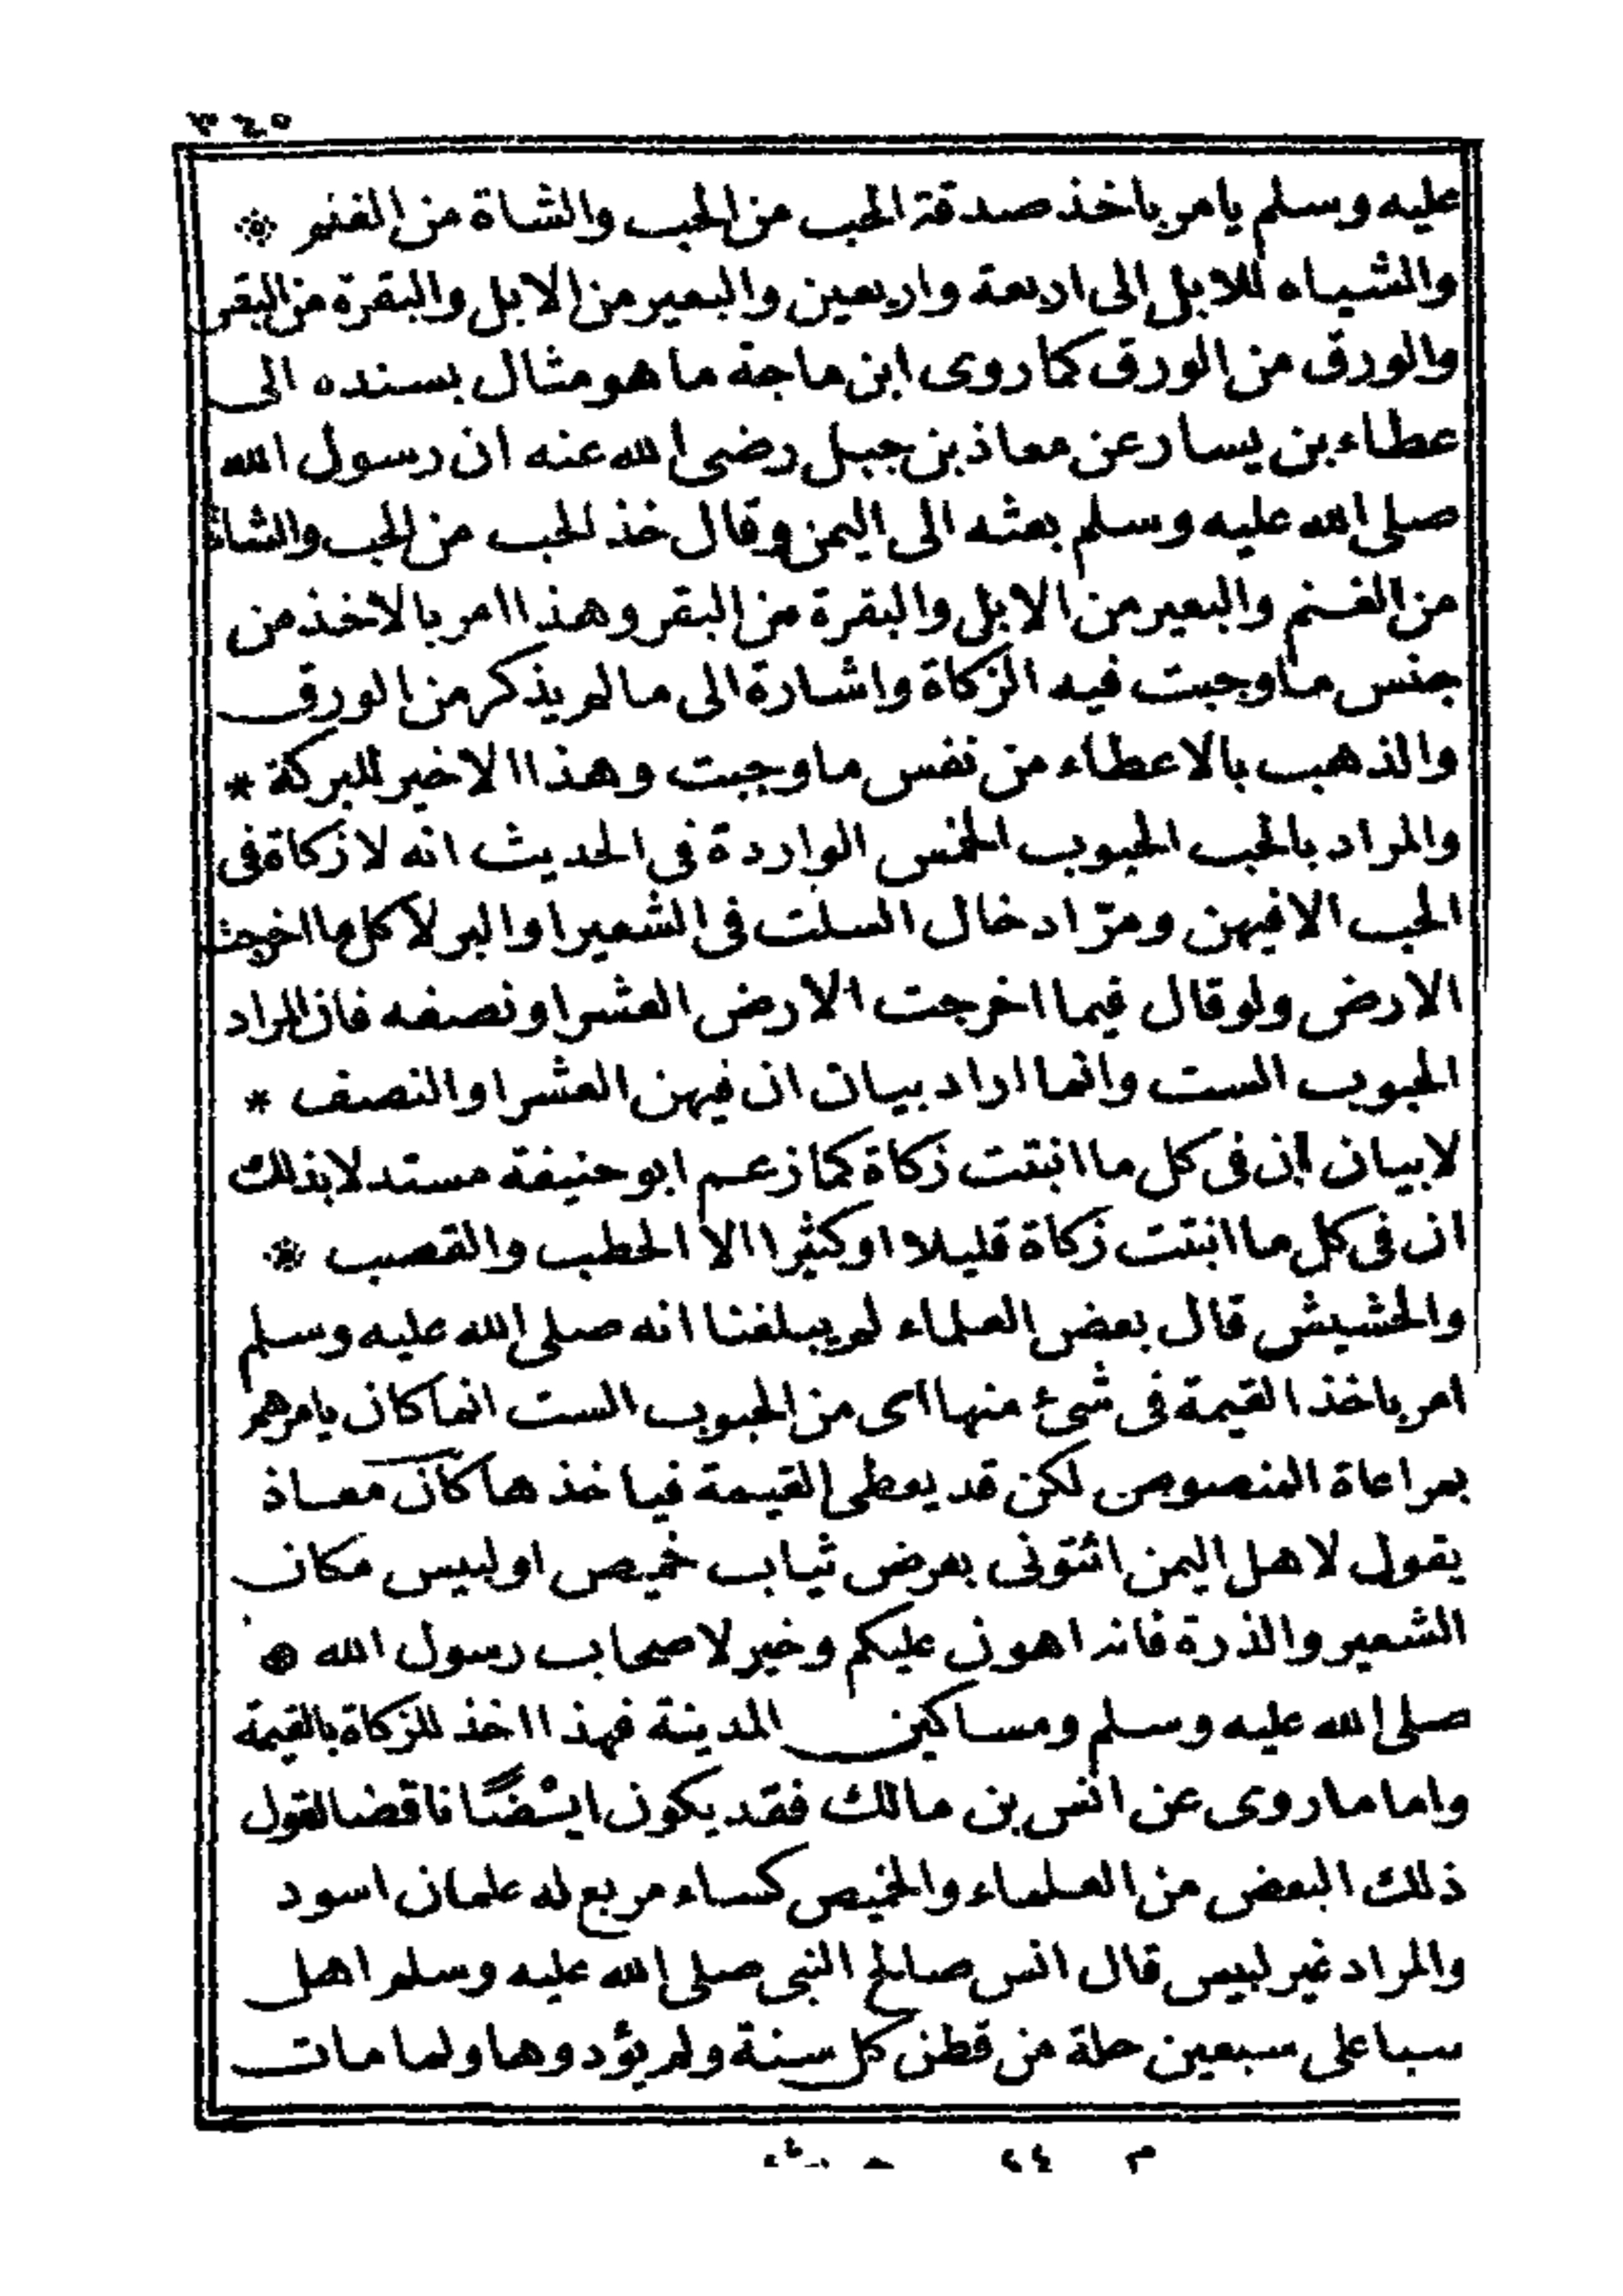 ٣٤٥
عليه وسلم يامر باخذ صدقة الحب من الحب والشاة من الغنم *
والشياه للابل الى اربعة واربعين والبعير من الابل والبقرة من البقر
والورق من الورق كما روى ابن ماجة ما هو مثال بسنده الى
عطاء بن يسار عن معاذ بن جبل رضى الله عنه ان رسول الله
صلى الله عليه وسلم بعثه الى اليمن وقال خذ الحب من الحب والشاة
من الغنم والبعير من الابل والبقرة من البقر وهذا امر بالاخذ من
جنس ما وجبت فيه الزكاة واشارة الى ما لم يذكر من الورق
والذهب بالاعطاء من نفس ما وجبت وهذا الاخير للبركة *
والمراد بالحب الحبوب الخمس الواردة فى الحديث انه لا زكاة فى
الحب الا فيهن ومرّ ادخال السلت فى الشعير او البر لا كل ما اخرجت
الارض ولو قال فيما اخرجت الارض العشر او نصفه فان المراد
الحبوب الست وانما اراد بيان ان فيهن العشر او النصف *
لا بيان ان فى كل ما انبتت زكاة كما زعم ابو حنيفة مستدلا بذلك
ان فى كل ما انبتت زكاة قليلا او كثيرا الا الحطب والقصب *
والحشيش قال بعض العلماء لم يبلغنا انه صلى الله عليه وسلم
امر باخذ القيمة فى شىء منها اى من الحبوب الست انما كان يامرهم
بمراعاة المنصوص لكن قد يعطى القيمة فياخذها كان معاذ
يقول لاهل اليمن ائتونى بعرض ثياب خميص او لبيس مكان
الشعير والذرة فانه اهون عليكم وخير لاصحاب رسول الله *
صلى الله عليه وسلم ومساكين المدينة فهذا اخذ للزكاة بالقيمة
واما ما روى عن انس بن مالك فقد يكون ايضًا ناقضا لقول
ذلك البعض من العلماء والخميص كساء مربع له علمان اسود
والمراد غير لبيس قال انس صالح النبى صلى الله عليه وسلم اهل
سبا على سبعين حلة من قطن كل سنة ولم يؤدوها ولما مات
م ٢٤